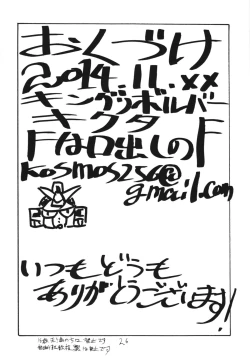 おくづけ
2014.11.××
キングリボルバー
キクタ
『は口出しの『
kosmos256@
gmail.com
いつもどうも
ありがとうございます!
26